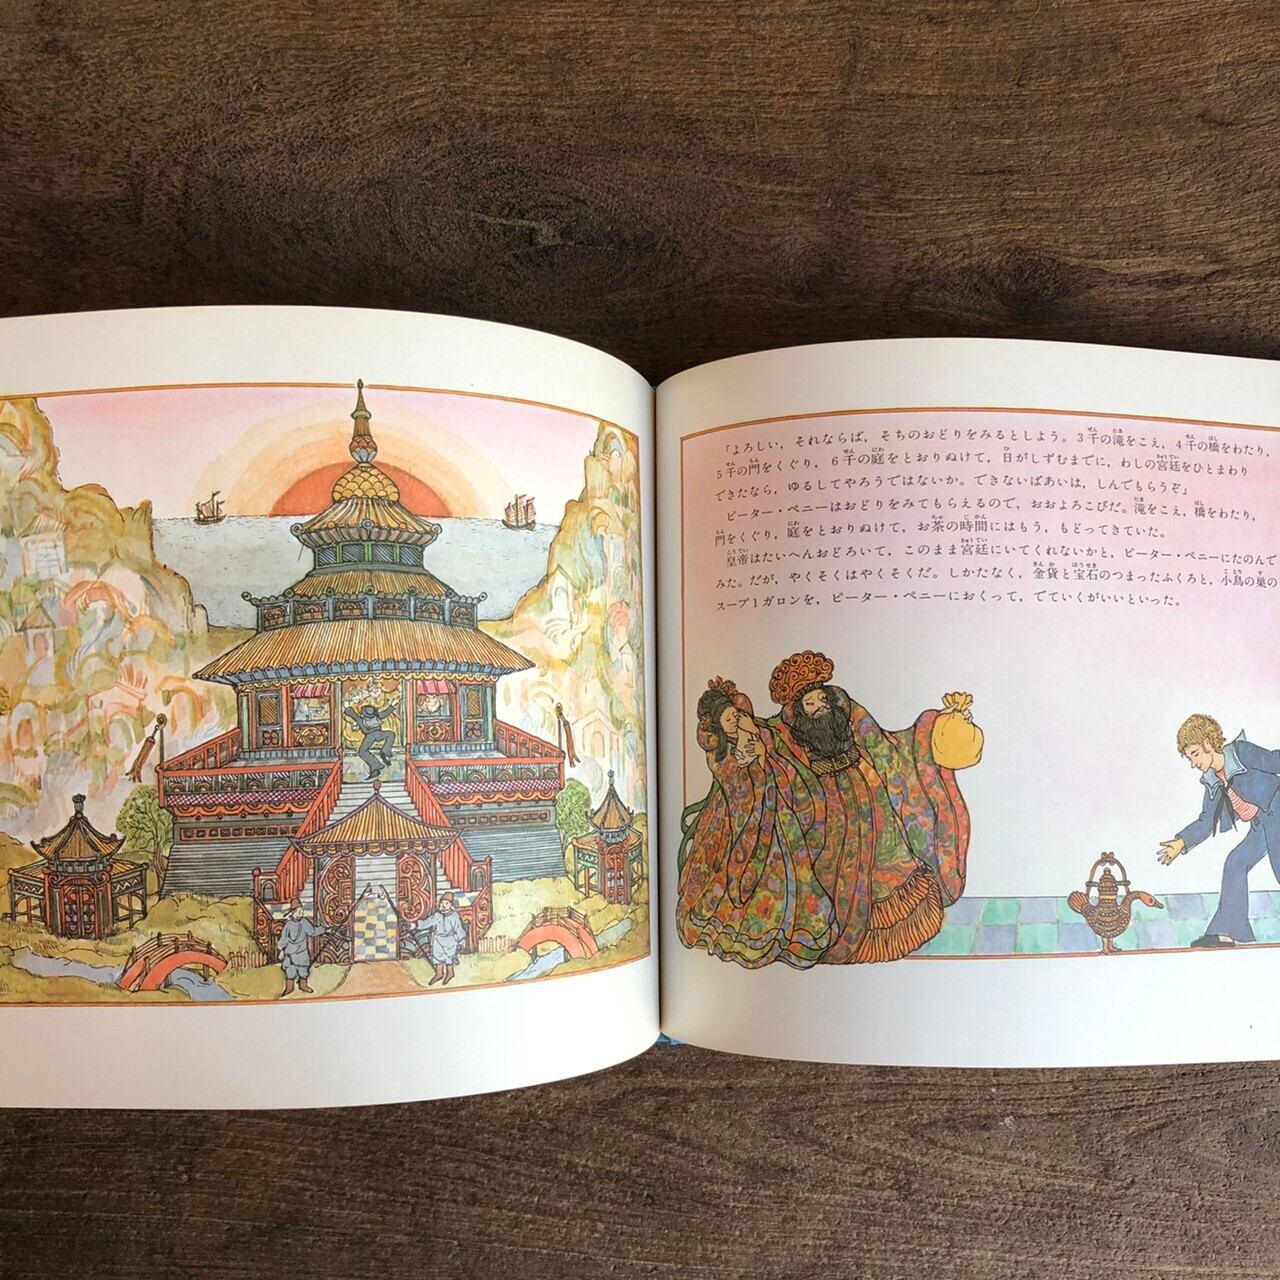 「よろしい，それならば，そちのおどりをみるとしよう。3千の滝をこえ，4千の橋をわたり，
5千の門をくぐり，6千の庭をとおりぬけて，日がしずむまでに，わしの宮廷をひとまわり
できたなら，ゆるしてやろうではないか。できないばあいは，しんでもらうぞ」
ピーター・ペニーはおどりをみてもらえるので，おおよろこびだ。滝をこえ，橋をわたり，
門をくぐり，庭をとおりぬけて，お茶の時間にはもう，もどってきていた。
皇帝はたいへんおどろいて，このまま宮廷にいてくれないかと，ピーター・ペニーにたのんで
みた。だが，やくそくはやくそくだ。しかたなく，金貨と宝石のつまったふくろと，小鳥の巣の
スープ1ガロンを，ピーター・ペニーにおくって，でていくがいいといった。